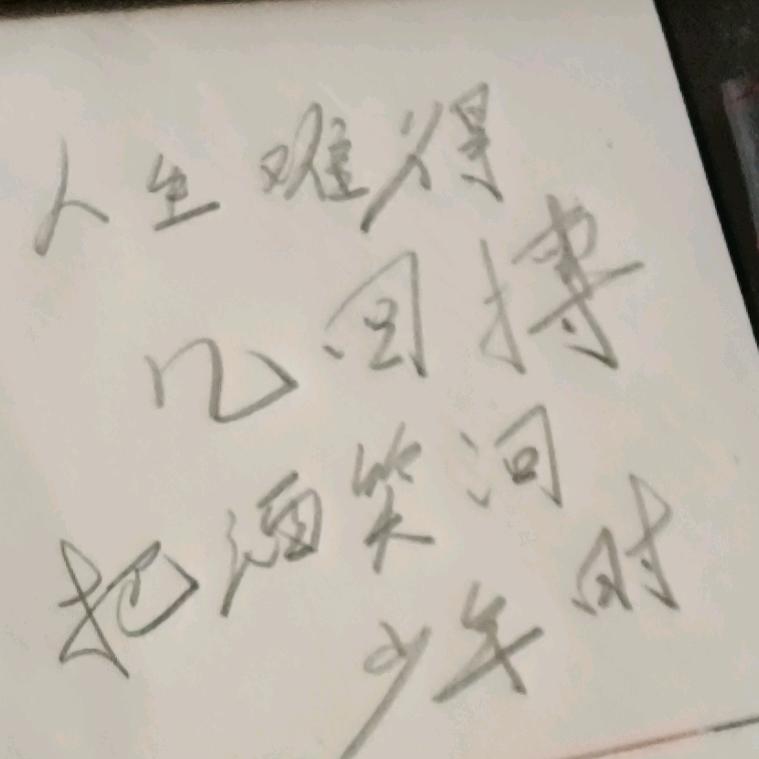 人生难得
几回搏
把酒笑问
少年时